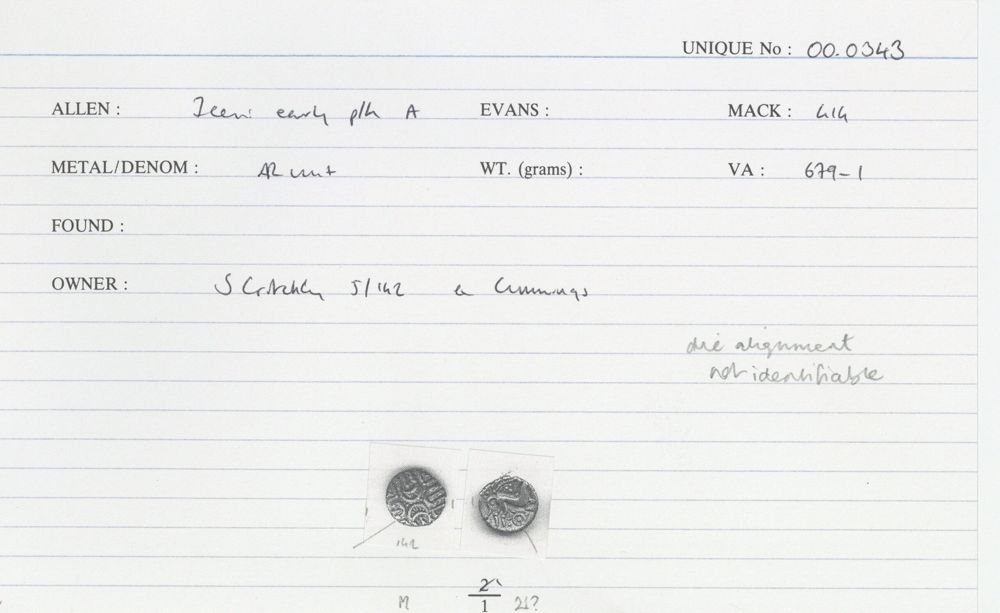 UNIQUE No : 00.0343
ALLEN : Iceni early pth A EVANS : MACK : 414
METAL/DENOM : AR unit WT. (grams) : VA : 679-1
FOUND :
OWNER : S 5/142 Cummings
die alignment
not identifiable
142
2
M 1 21?